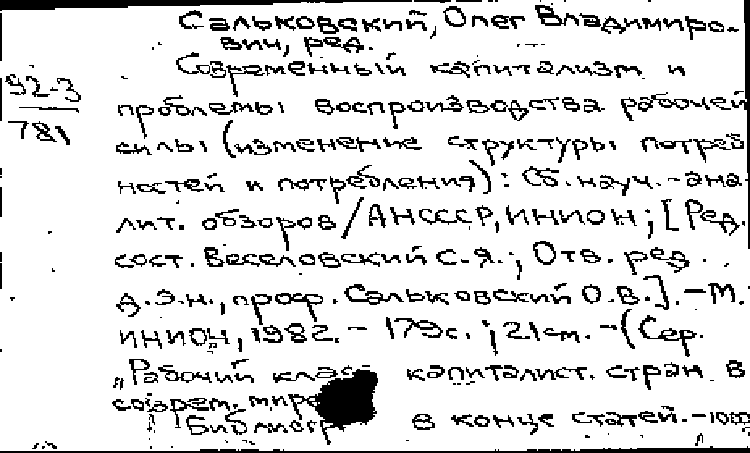 Сальковский, Олег Владимиро-
вич, ред.
Современный капитализм и
92-3
781
проблемы воспроизводства рабочей
силы (изменение структуры потреб
ностей и потребления): Сб. науч.-ана-
лит. обзоров/АНСССР, ИНИОН; [Ред.
сост. Веселовский С.Я.; Отв. ред.
д.э.н., проф. Сальковский О.В.]. - М.:
ИНИОН, 1982. - 179с.; 21см. - (Сер.
"Рабочий класс капиталист. стран в
соврем. мире
Библиогр в конце статей. -